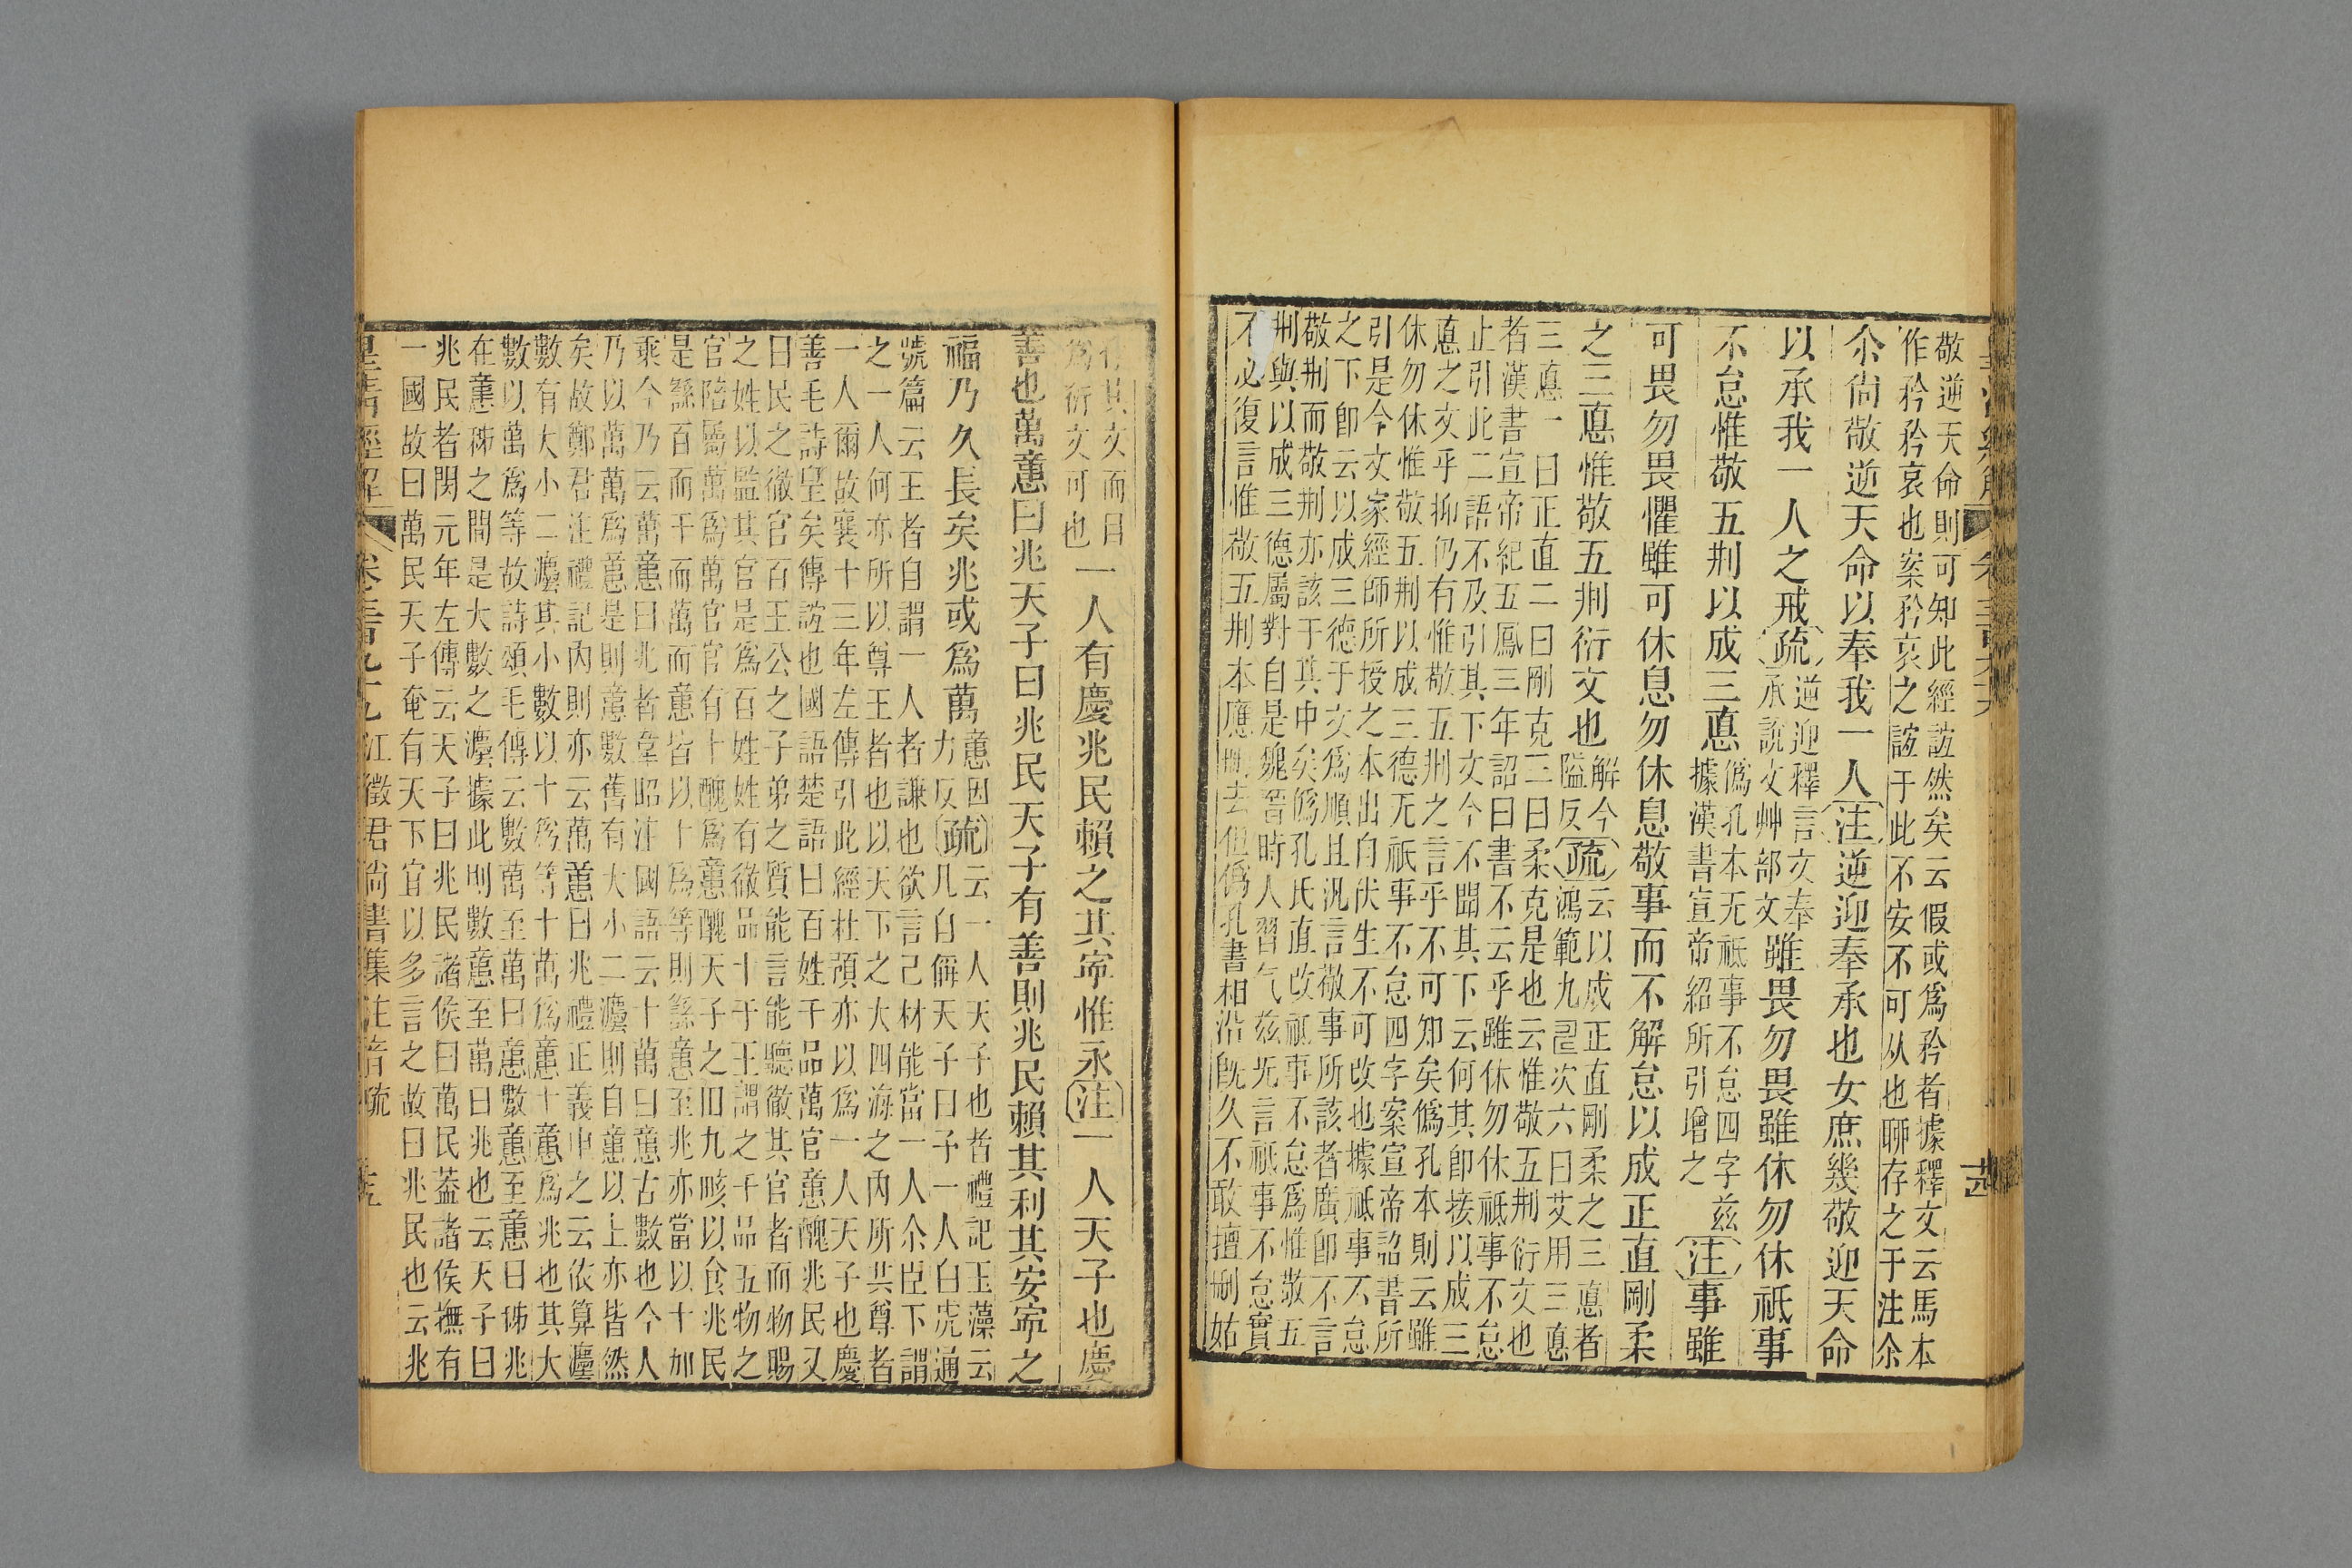 敬逆天命則可知此經誼然矣云假或爲矜者據釋文云馬本
作矜矜哀也案矜哀之誼于此不安不可从也聊存之于注尒
尒尙敬逆天命以奉我一人注逆迎奉承也女庶幾敬迎天命
以承我一人之戒疏逆迎釋言文奉
承說文艸部文雖畏勿畏雖休勿休祇事
不怠惟敬五𠛬以成三悳僞孔本无祗事不怠四字兹
據漢書宣帝紹所引增之注事雖
可畏勿畏懼雖可休息勿休息敬事而不解怠以成正直剛柔
之三悳惟敬五𠛬衍文也解今
隘反疏云以成正直剛柔之三悳者
鴻範九𠾅次六曰艾用三悳
三悳一曰正直二曰剛克三曰柔克是也云惟敬五𠛬衍文也
者漢書宣帝紀五鳳三年詔曰書不云乎雖休勿休祗事不怠
止引此二語不及引其下文今不聞其下云何其卽接以成三
悳之文乎抑仍有惟敬五𠛬之言乎不可知矣僞孔本則云雖
休勿休惟敬五𠛬以成三德无祇事不怠四字案宣帝詔書所
引是今文家經師所授之本出自伏生不可改也據祗事不怠
之下卽云以成三德于文爲順且汎言敬事所該者廣卽不言
敬𠛬而敬𠛬亦該于其中矣僞孔氏直改祇事不怠爲惟敬五
𠛬與以成三德屬對自是魏晉時人習气兹旣言祗事不怠實
不必復言惟敬五𠛬本應刪去但僞孔書相沿旣久不敢擅刪姑
存其文而目
爲衍文可也一人有慶兆民賴之其寍惟永注一人天子也慶
善也萬𢡃曰兆天子曰兆民天子有善則兆民賴其利其安寍之
福乃久長矣兆或爲萬𢡃因
力反疏云一人天子也者禮記玉藻云
凡自偁天子曰予一人白虎通
號篇云王者自謂一人者謙也欲言己材能當一人尒臣下謂
之一人何亦所以尊王者也以天下之大四海之內所共尊者
一人爾故襄十三年左傳引此經杜預亦以爲一人天子也慶
善毛詩皇矣傳誼也國語楚語曰百姓千品萬官𢡃醜兆民又
曰民之徹官百王公之子弟之質能言能聽徹其官者而物賜
之姓以監其官是爲百姓姓有徹品十于王謂之千品五物之
官陪屬萬爲萬官官有十醜爲𢡃醜天子之田九畡以食兆民
是繇百而千而萬而𢡃皆以十爲等則繇𢡃至兆亦當以十加
乘今乃云萬𢡃曰兆者韋昭注國語云十萬曰𢡃古數也今人
乃以萬萬爲𢡃是則𢡃數舊有大小二灋則自𢡃以上亦皆然
矣故鄭君注禮記內則亦云萬𢡃曰兆禮正義申之云依算灋
數有大小二灋其小數以十爲等十萬爲𢡃十𢡃爲兆也其大
數以萬爲等故詩頌毛傳云數萬至萬曰𢡃數𢡃至𢡃曰秭兆
在𢡃秭之間是大數之灋據此則數𢡃至萬曰兆也云天子曰
兆民者閔元年左傳云天子曰兆民諸侯曰萬民葢諸侯撫有
一國故曰萬民天子奄有天下宜以多言之故曰兆民也云兆
皇淸經解 卷三百九十九 江徵君尙書集注音疏